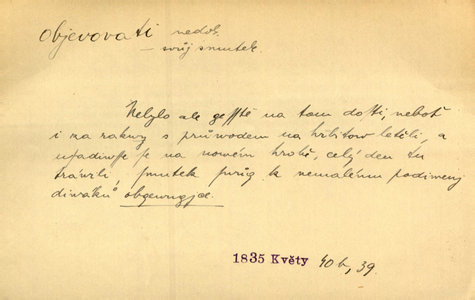 Objevovati nedok.
— svůj smutek.
Nebylo ale gesstě na tom dosti, neboť
i za rakwy s průwodem na hřbitow letěli, a
usadiwsse se na nowém hrobě, celý den tu
tráwili, smutek swůg k nemalému podiwenj
diwáků obgewugjce.
1835 Květy 40 b, 39.